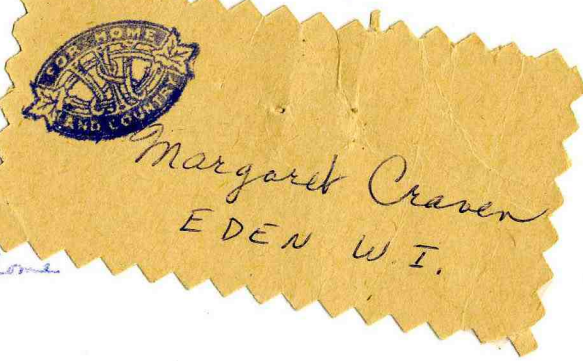 FOR HOME
AND COUNTRY
Margaret Craven
EDEN W.I.